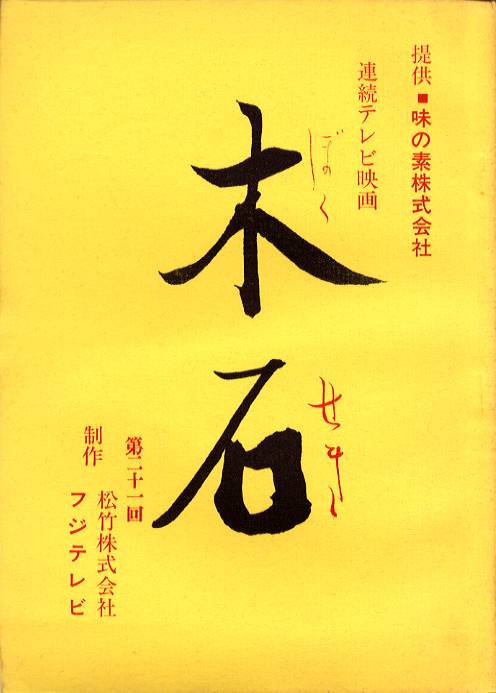 提供■味の素株式会社
連続テレビ映画
木石
ぼく
せき
第二十一回
制作
松竹株式会社
フジテレビ